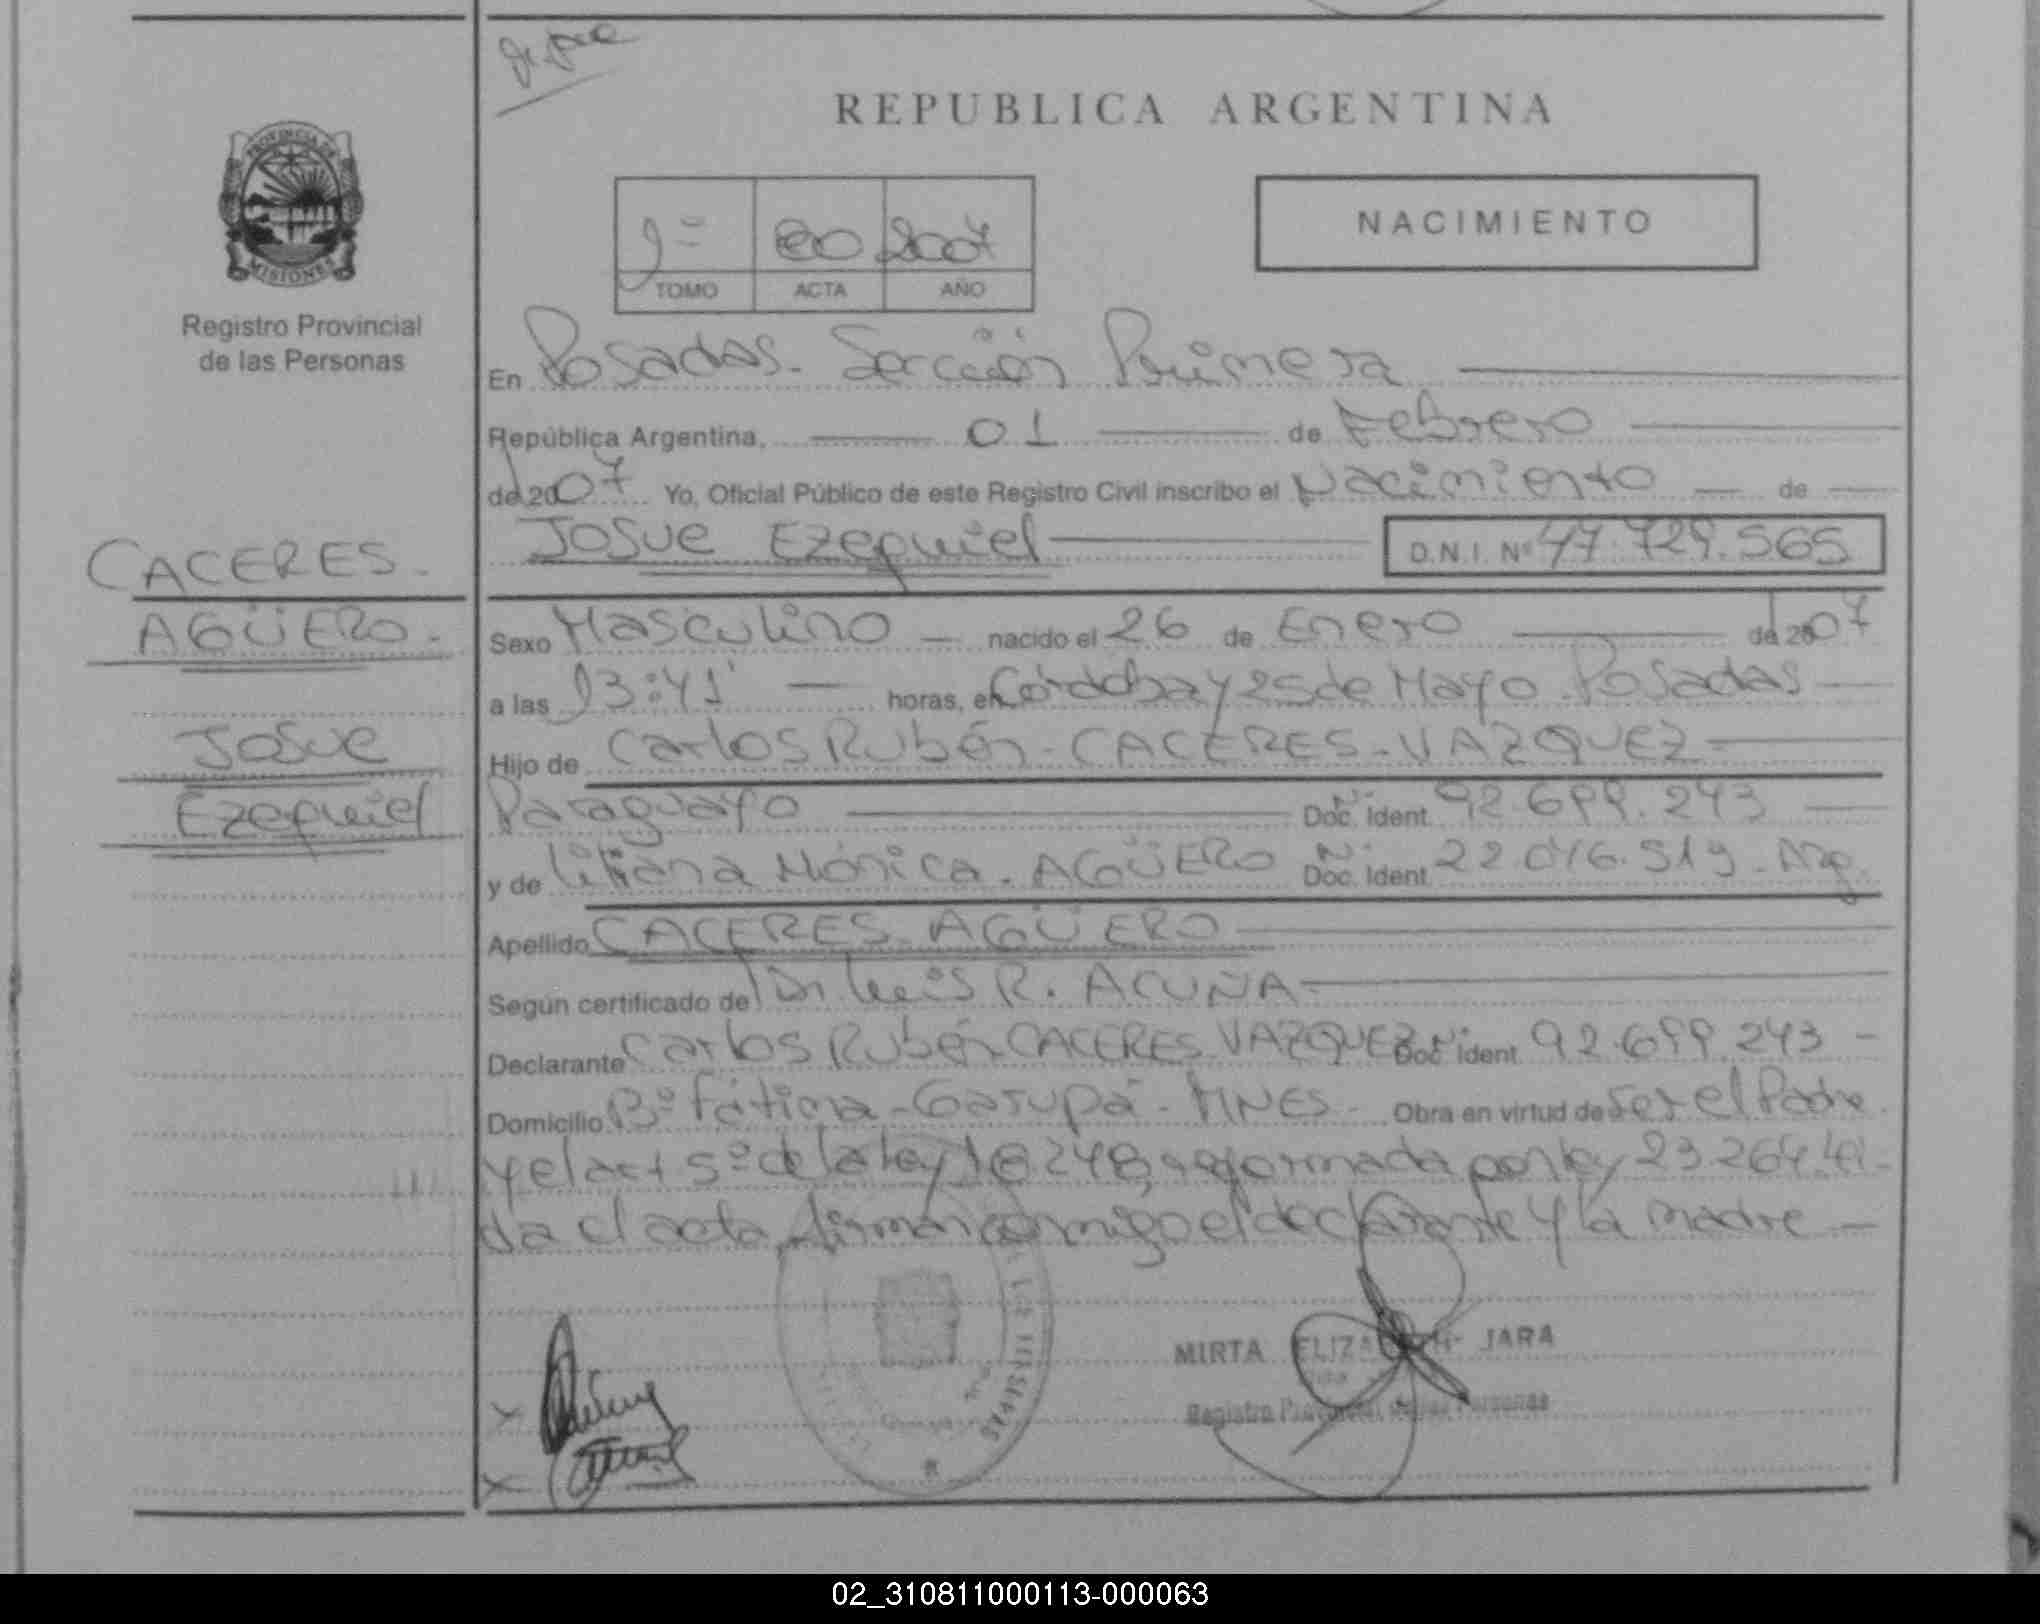 REPUBLICA ARGENTINA
PROVINCIA DE
MISIONES
Registro Provincial
de las Personas
NACIMIENTO
1º 80 2007
TOMO ACTA AÑO
En Posadas - Sección Primera
República Argentina, 01 de Febrero
de 2007 Yo, Oficial Público de este Registro Civil inscribo el Nacimiento de
Josue Ezequiel D.N.I. Nº 47.729.565
CACERES -
AGÜERO -
Josue
Ezequiel
Sexo Masculino nacido el 26 de Enero de 2007
a las 13:41' horas, en Córdoba y 25 de Mayo - Posadas
Hijo de Carlos Rubén - CACERES - VAZQUEZ -
Paraguayo Doc. Ident. Nº 92.699.243
y de Liliana Mónica - AGÜERO Doc. Ident. Nº 22.046.519 - Arg.
Apellido CACERES - AGÜERO
Según certificado de Dr Luis R. ACUÑA
Declarante Carlos Rubén CACERES VAZQUEZ Doc. Ident. Nº 92.699.243 -
Domicilio Bº Fátima - Garupá - MNES - Obra en virtud de ser el Padre
y el art 5º de la ley 18.248, reformada por ley 23.264. Leí-
da el acta, firman conmigo el declarante y la madre
MIRTA ELIZABETH JARA
Registro Provincial de las Personas
02_310811000113-000063